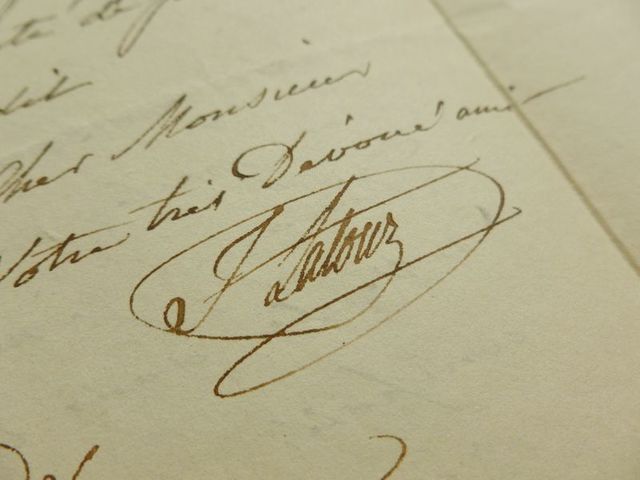 dit
Cher Monsieur
Votre très Dévoué ami
J Latour